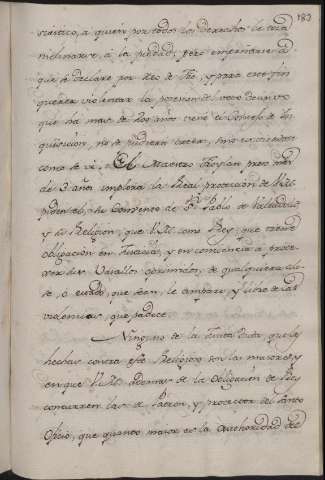 183
siastico, a quien por todos los Derechos le toca
inclinarse, à la piedad, pero empeñarse à
que se declare por Reo de Fee, y para este fin
querer violentar la posesion del voto decisivo
que ha mas de 200 años tiene el Consejo de In-
quisicion, no se pudieran creer, sino es viendose
como se vè. El Maestro Froylan preso mas
de 3 años implora la Real proteccion de V.M.
piden el, su Convento de Sn. Pablo de Valladolid
y su Religion, que V.M. como Rey, que tiene
obligacion en Justicia, y en conciencia à prote-
ger sus Vasallos oprimidos, de qualquiera clase
se, ò estado, que sean, le ampare, y libre de las
violencias, que padece.
Ninguno de la Junta Duda, que las
hechas contra este Religioso son las mayores, y
en que V.M. ademas de la obligacion de Rey
concurren las de Patron, y protector del Santo
Oficio, que quanto mayor es la Authoridad del